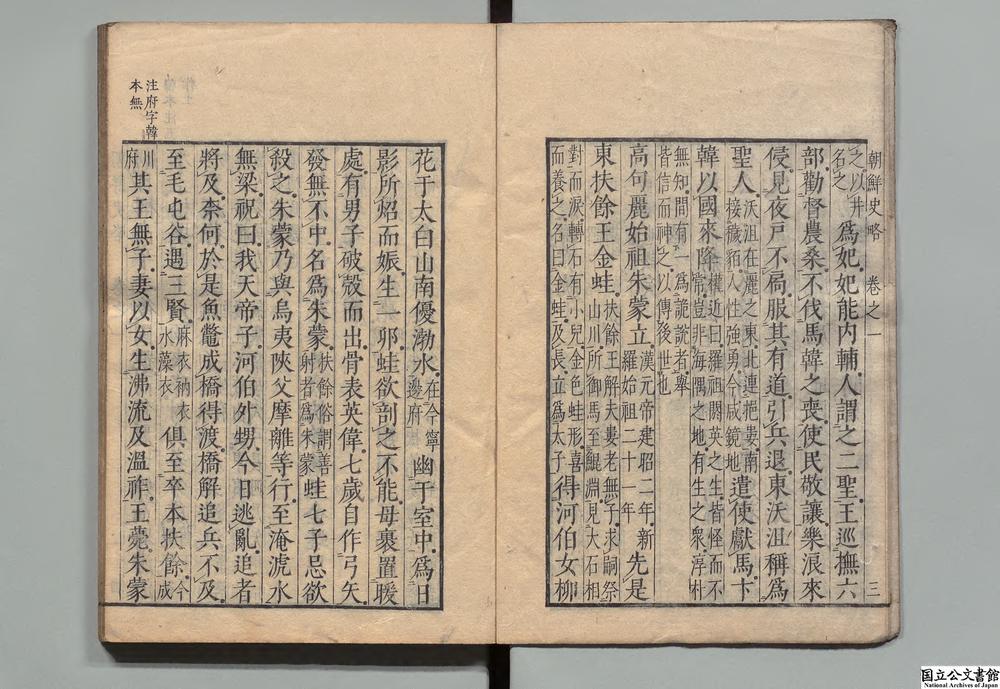 朝鮮史略 卷之一 三
之以井名之爲妃妃能内輔人謂之二聖王巡撫六
部勸督農桑不伐馬韓之喪使民敬讓樂浪來
侵見夜戸不扃服其有道引兵退東沃沮稱爲
聖人沃沮在麗之東北連挹婁南接穢貊人性強勇今咸鏡地遣使獻馬卞
韓以國來降權近曰羅祖閼英之生皆怪而不常豈非海隅之地有生之衆淳朴
無知間有一爲詭説者擧皆信而神之以傳後世也
高句麗始祖朱蒙立漢元帝建昭二年新羅始祖二十一年先是
東扶餘王金蛙扶餘王解夫婁老無子求嗣祭山川所御馬至鯤淵見大石相
對而淚轉石有小兒金色蛙形喜而養之名曰金蛙及長立爲太子得河伯女柳
花于太白山南優渤水在今寧邊府幽于室中爲日
影所炤而娠生一卵蛙欲剖之不能母裹置暖
處有男子破殼而出骨表英偉七歳自作弓矢
發無不中名爲朱蒙扶餘俗謂善射者爲朱蒙蛙七子忌欲
殺之朱蒙乃與烏夷陜父摩離等行至淹淲水
無梁祝曰我天帝子河伯外甥今日逃亂追者
將及柰何於是魚鼈成橋得渡橋解追兵不及
至毛屯谷遇三賢麻衣衲衣水藻衣俱至卒本扶餘今成
川府其王無子妻以女生沸流及溫祚王薨朱蒙
注府字韓
本無
国立公文書館
National Archives of Japan